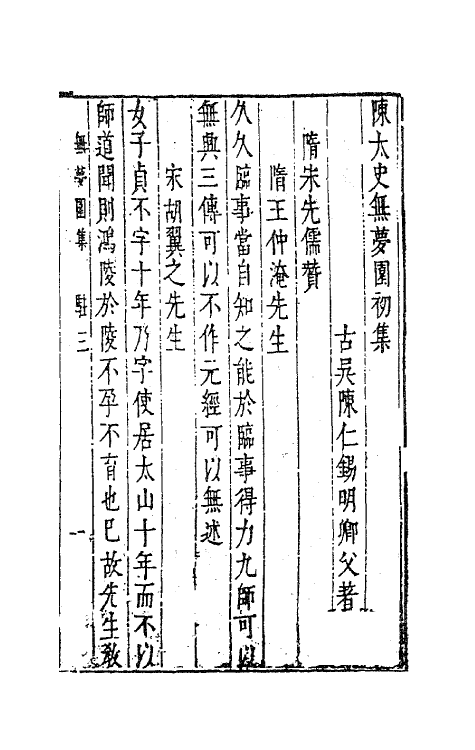 陳太史無夢園初集
古吳陳仁錫明卿父著
隋宋先儒贊
隋王仲淹先生
久久臨事當自知之能於臨事得力九師可以
無與三傳可以不作元經可以無述
宋胡翼之先生
女子貞不字十年乃字使居太山十年而不以
師道聞則鴻陵於陵不孕不育也已故先生教
無夢園集 駐三 一